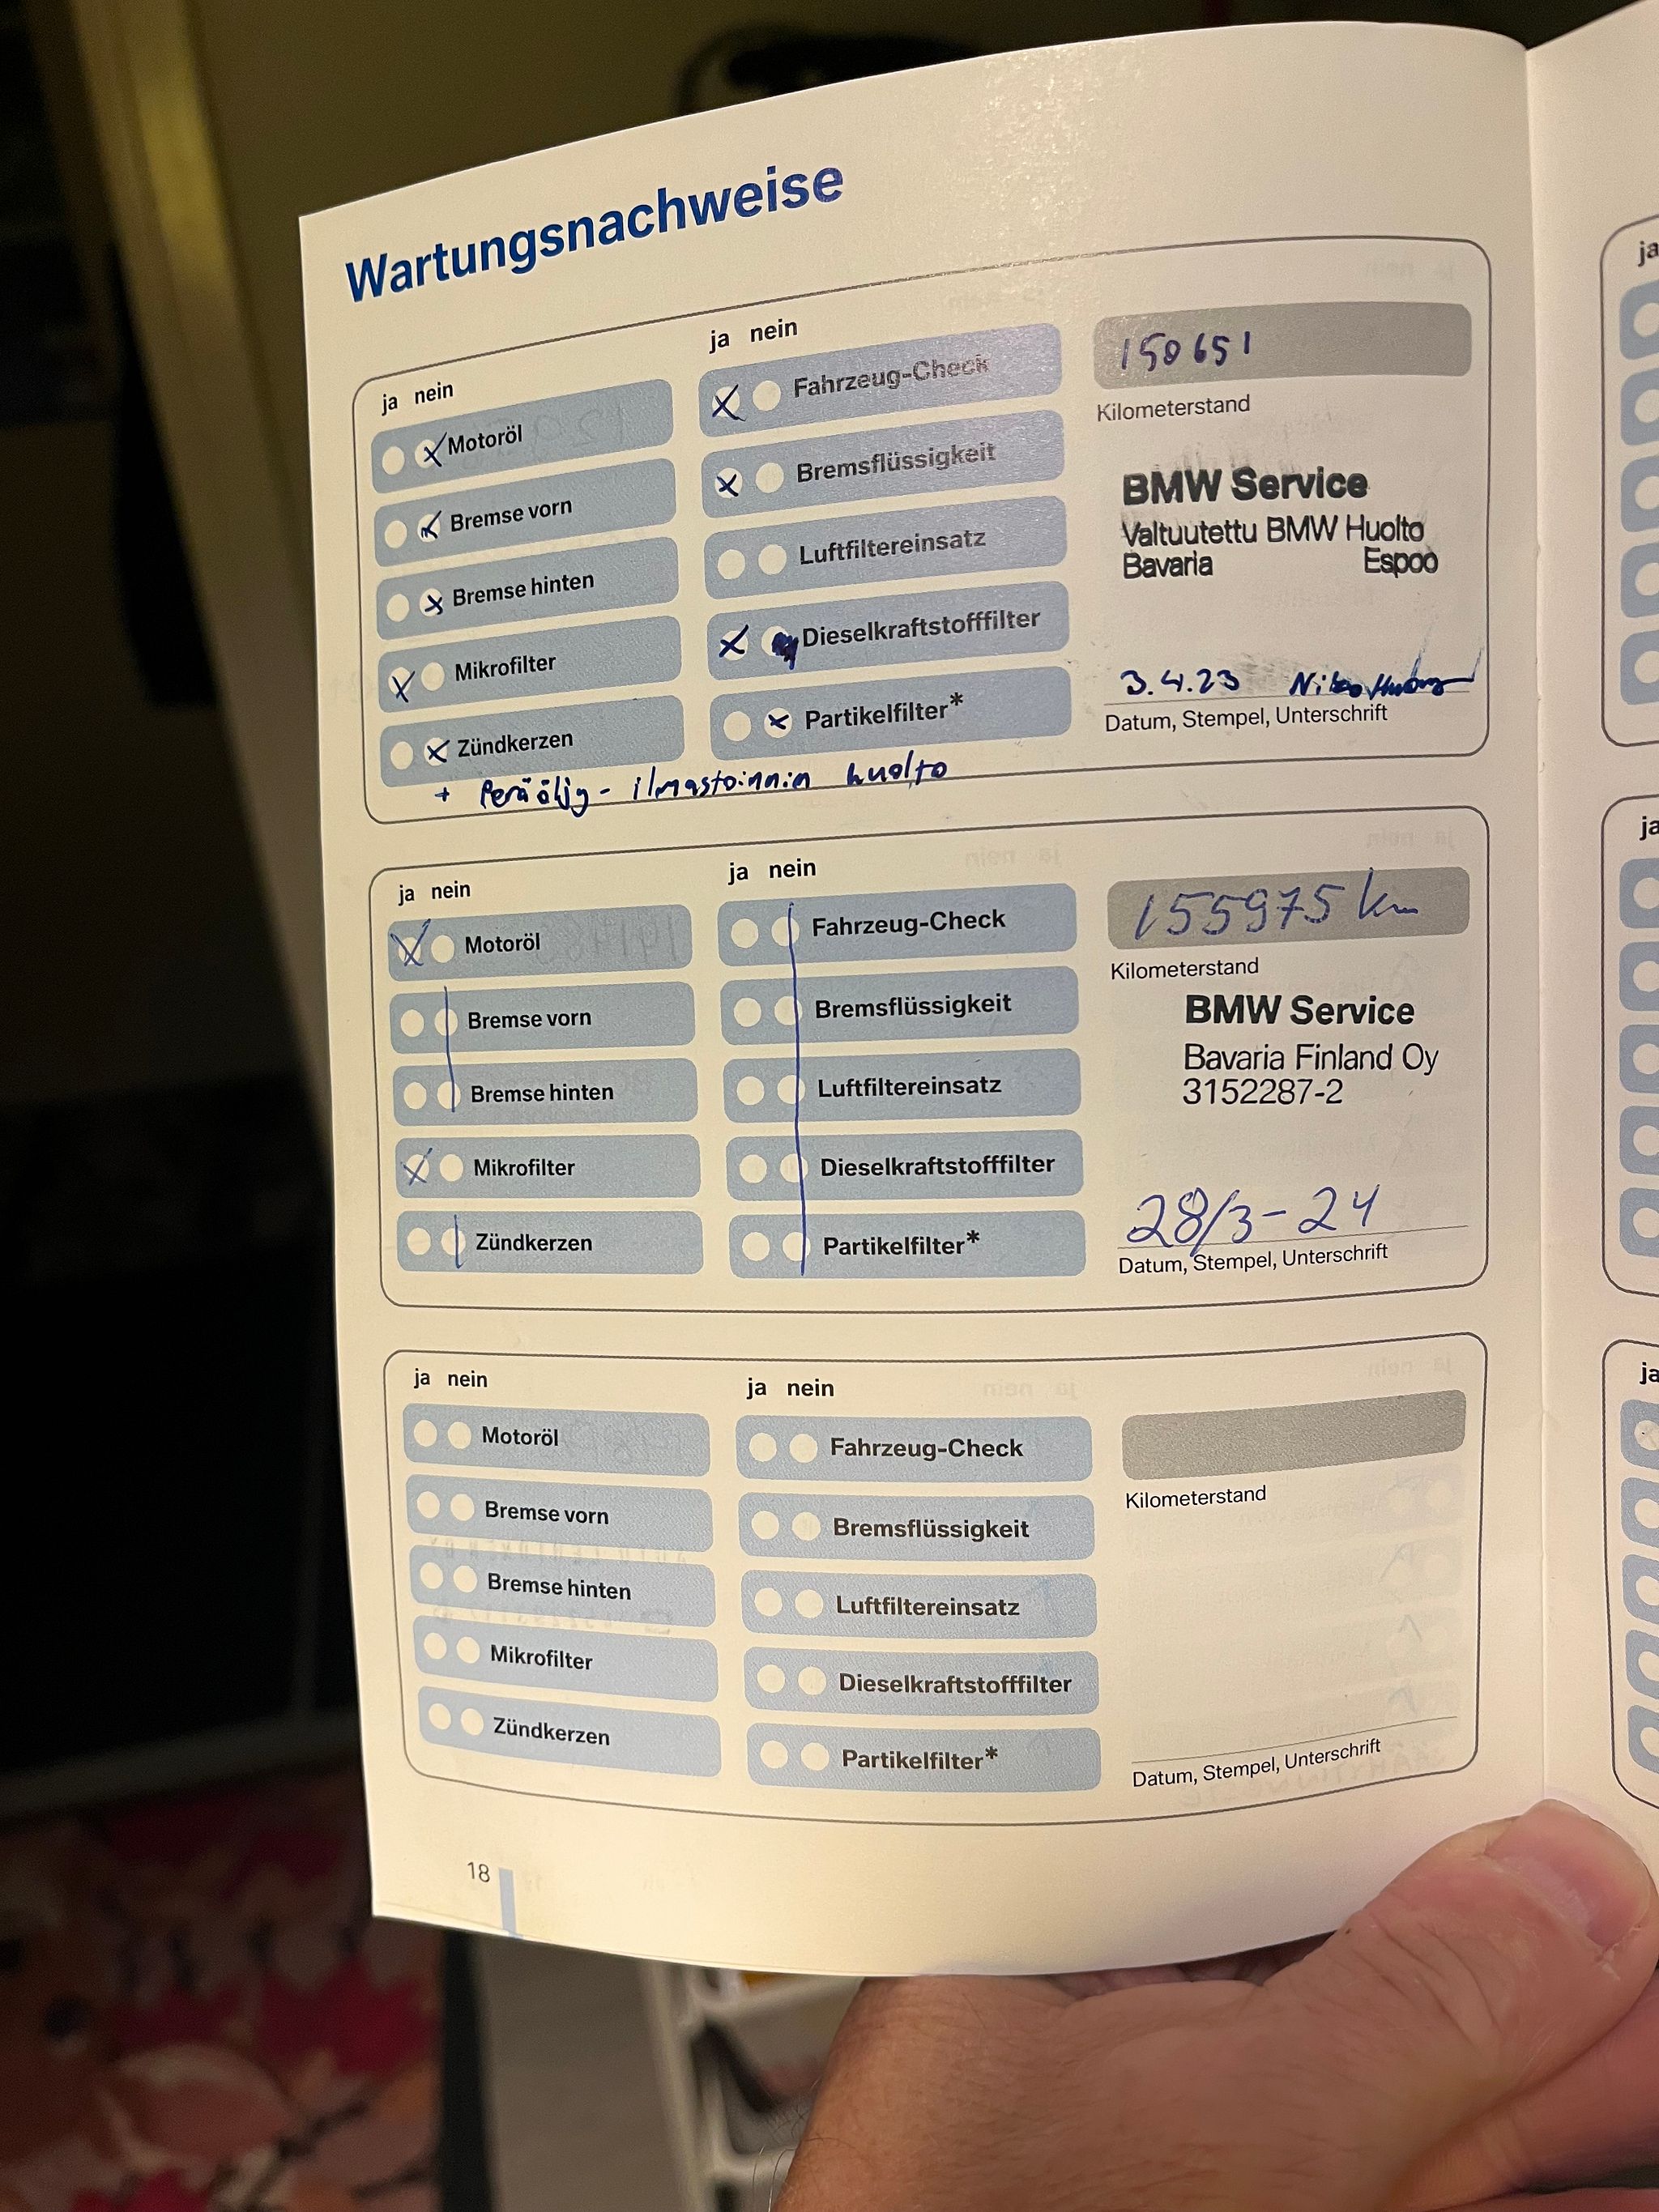 Wartungsnachweise
ja nein
Motoröl
Bremse vorn
Bremse hinten
Mikrofilter
Zündkerzen
ja nein
Fahrzeug-Check
Bremsflüssigkeit
Luftfiltereinsatz
Dieselkraftstofffilter
Partikelfilter*
+ Peräöljy- ilmastoinnin huolto
150651
Kilometerstand
BMW Service
Valtuutettu BMW Huolto
Bavaria Espoo
3.4.23
Datum, Stempel, Unterschrift
ja nein
Motoröl
Bremse vorn
Bremse hinten
Mikrofilter
Zündkerzen
ja nein
Fahrzeug-Check
Bremsflüssigkeit
Luftfiltereinsatz
Dieselkraftstofffilter
Partikelfilter*
155975 km
Kilometerstand
BMW Service
Bavaria Finland Oy
3152287-2
28/3-24
Datum, Stempel, Unterschrift
ja nein
Motoröl
Bremse vorn
Bremse hinten
Mikrofilter
Zündkerzen
ja nein
Fahrzeug-Check
Bremsflüssigkeit
Luftfiltereinsatz
Dieselkraftstofffilter
Partikelfilter*
Kilometerstand
Datum, Stempel, Unterschrift
18
ja
ja
ja